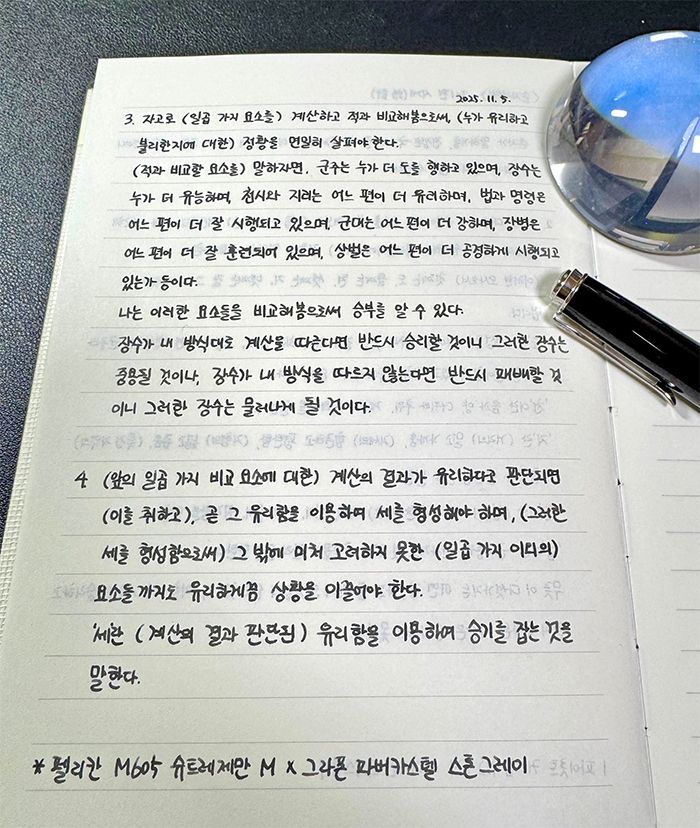 2025. 11. 5.
3. 자고로 (일곱 가지 요소를) 계산하고 적과 비교해봄으로써, (누가 유리하고
불리한지에 대한) 정황을 면밀히 살펴야 한다.
(적과 비교할 요소를) 말하자면, 군주는 누가 더 도를 행하고 있으며, 장수는
누가 더 유능하며, 천시와 지리는 어느 편이 더 유리하며, 법과 명령은
어느 편이 더 잘 시행되고 있으며, 군대는 어느 편이 더 강하며, 장병은
어느 편이 더 잘 훈련되어 있으며, 상벌은 어느 편이 더 공정하게 시행되고
있는가 등이다.
나는 이러한 요소들을 비교해봄으로써 승부를 알 수 있다.
장수가 내 방식대로 계산을 따른다면 반드시 승리할 것이니 그러한 장수는
중용될 것이나, 장수가 내 방식을 따르지 않는다면 반드시 패배할 것
이니 그러한 장수는 물러나게 될 것이다.
4 (앞의 일곱 가지 비교 요소에 대한) 계산의 결과가 유리하다고 판단되면
(이를 취하고), 곧 그 유리함을 이용하여 세를 형성해야 하며, (그러한
세를 형성함으로써) 그 밖에 미처 고려하지 못한 (일곱 가지 이외의)
요소들까지도 유리하게끔 상황을 이끌어야 한다.
'세'란 (계산의 결과 판단된) 유리함을 이용하여 승기를 잡는 것을
말한다.
* 펠리칸 M605 슈트레제만 M x 그라폰 파버카스텔 스톤그레이